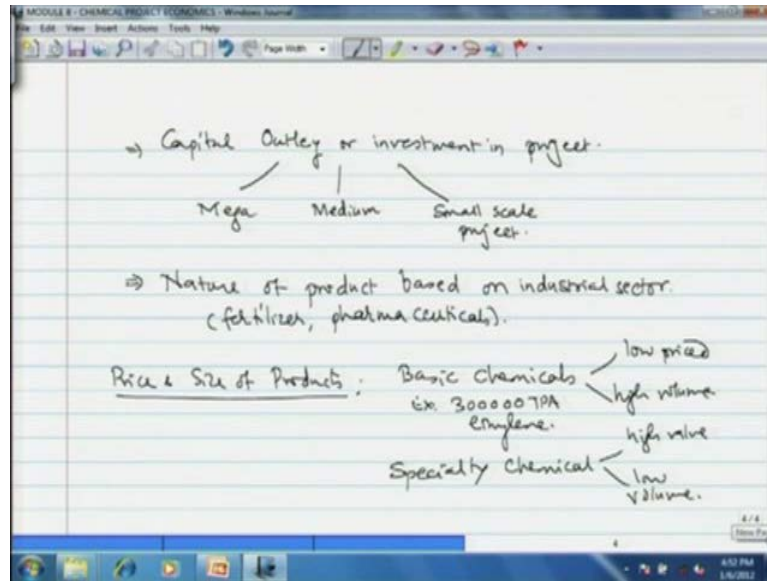 MODULE 8 - CHEMICAL PROJECT ECONOMICS - Windows Journal
File Edit View Insert Actions Tools Help
Page Width
⇒ Capital Outley or investment in project.
Mega Medium Small scale
project.
⇒ Nature of product based on industrial sector.
(fertilizer, pharmaceuticals).
Price & Size of Products : Basic Chemicals low priced
high volume
Ex. 300000 TPA
ethylene.
Specialty Chemical high value
low
volume.
4/4
New Pa
4
4:52 PM
1/6/2012